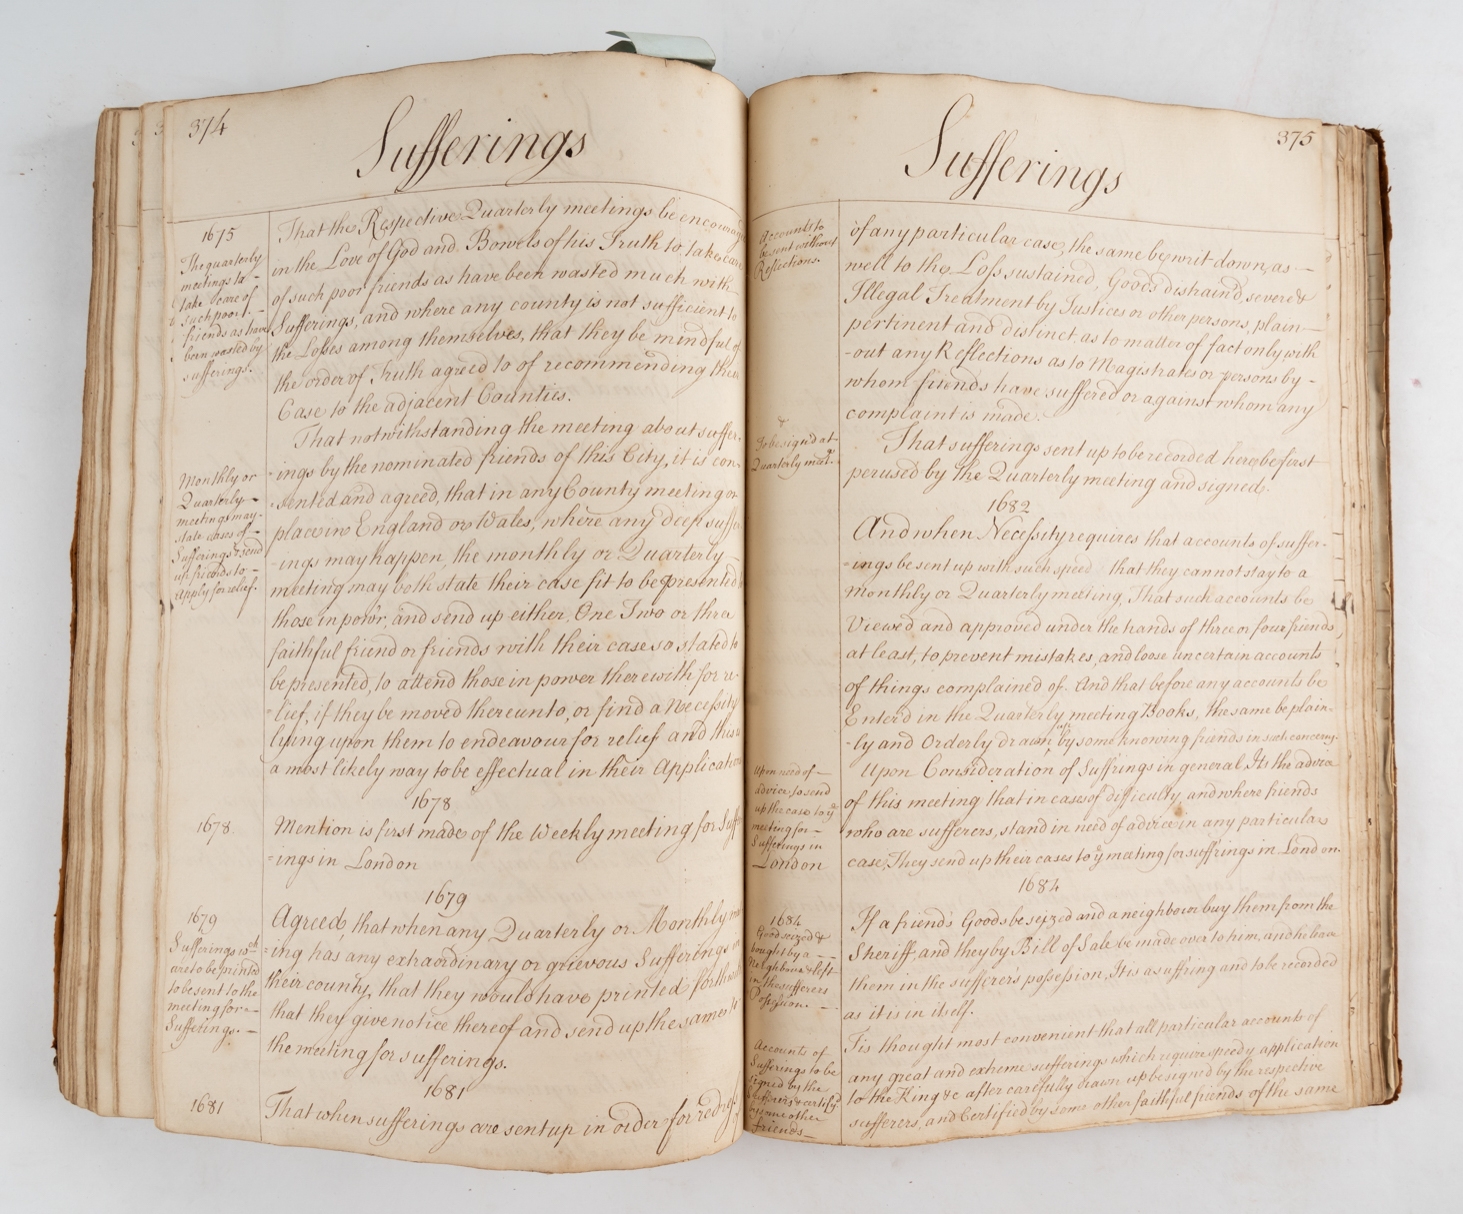 374
Sufferings
1675
The quarterly
meetings to
take care of
such poor
friends as have
been wasted by
sufferings.
That the Respective Quarterly meetings be encourag
in the Love of God and Bowels of his Truth to take care
of such poor friends as have been wasted much with
Sufferings, and where any county is not sufficient to
the Losses among themselves, that they be mindful of
the order of Truth agreed to of recommending the
Case to the adjacent Counties.
Monthly or
Quarterly
meetings may
state cases of
Sufferings & send
up friends to
apply for relief.
That notwithstanding the meeting about suffer-
=ings by the nominated friends of this City, it is con-
=sented and agreed, that in any County meeting or
place in England or Wales, where any deep suffer
-ings may happen, the monthly or Quarterly
meeting may both state their case fit to be presented
those in powr, and send up either, One Two or three
faithful friend or friends with their case so stated to
be presented, to attend those in power therewith for re-
=lief, if they be moved thereunto, or find a Necessity
lying upon them to endeavour for relief and this
a most likely way to be effectual in their Application
1678
1678
Mention is first made of the Weekly meeting for Suff
=ings in London
1679
1679
Sufferings wch
are to be printed
to be sent to the
meeting for
Sufferings.
Agreed, that when any Quarterly or Monthly me
=ing has any extraordinary or grievous Sufferings in
their county, that they would have printed forthwith
that they give notice thereof and send up the same to
the meeting for sufferings.
1681
1681
That when sufferings are sent up in order for redress
375
Sufferings
Accounts to
be sent without
Reflections.
of any particular case, the same be writ down, as
well to the Loss sustained, Goods distraind, severe &
Illegal Treatment by Justices or other persons, plain
pertinent and distinct, as to matter of fact only with
-out any Reflections as to Magistrates or persons by
whom friends have suffered or against whom any
complaint is made.
&
To be signd at
Quarterly meetg.
That sufferings sent up to be recorded here be first
perused by the Quarterly meeting and signed.
1682
And when Necessity requires that accounts of suffer-
=ings be sent up with such speed that they cannot stay to a
Monthly or Quarterly meeting, That such accounts be
Viewed and approved under the hands of three or four friends
at least, to prevent mistakes, and loose uncertain accounts
of things complained of. And that before any accounts be
Enterd in the Quarterly meeting Books, the same be plain-
-ly and Orderly drawn up by some knowing friends in such concerns.
Upon need of
advice to send
up the case to ye
meeting for
Sufferings in
London
Upon Consideration of Suffrings in general Its the advice
of this meeting that in cases of difficulty, and where friends
who are sufferers, stand in need of advice in any particular
case, They send up their cases to ye meeting for suffrings in London.
1684
1684
Goods seized &
bought by a
Neighbour & left
in the sufferers
Possession.
If a friend's Goods be seized and a neighbour buy them from the
Sheriff, and they by Bill of Sale be made over to him, and he leave
them in the sufferer's possession, It is a suffring and to be recorded
as it is in itself.
Accounts of
Sufferings to be
signed by the
sufferers & certifyd
by some other
friends
Tis thought most convenient that all particular accounts of
any great and extreme sufferings which require speedy application
to the King &c after carefully drawn up be signed by the respective
sufferers, and Certified by some other faithful friends of the same